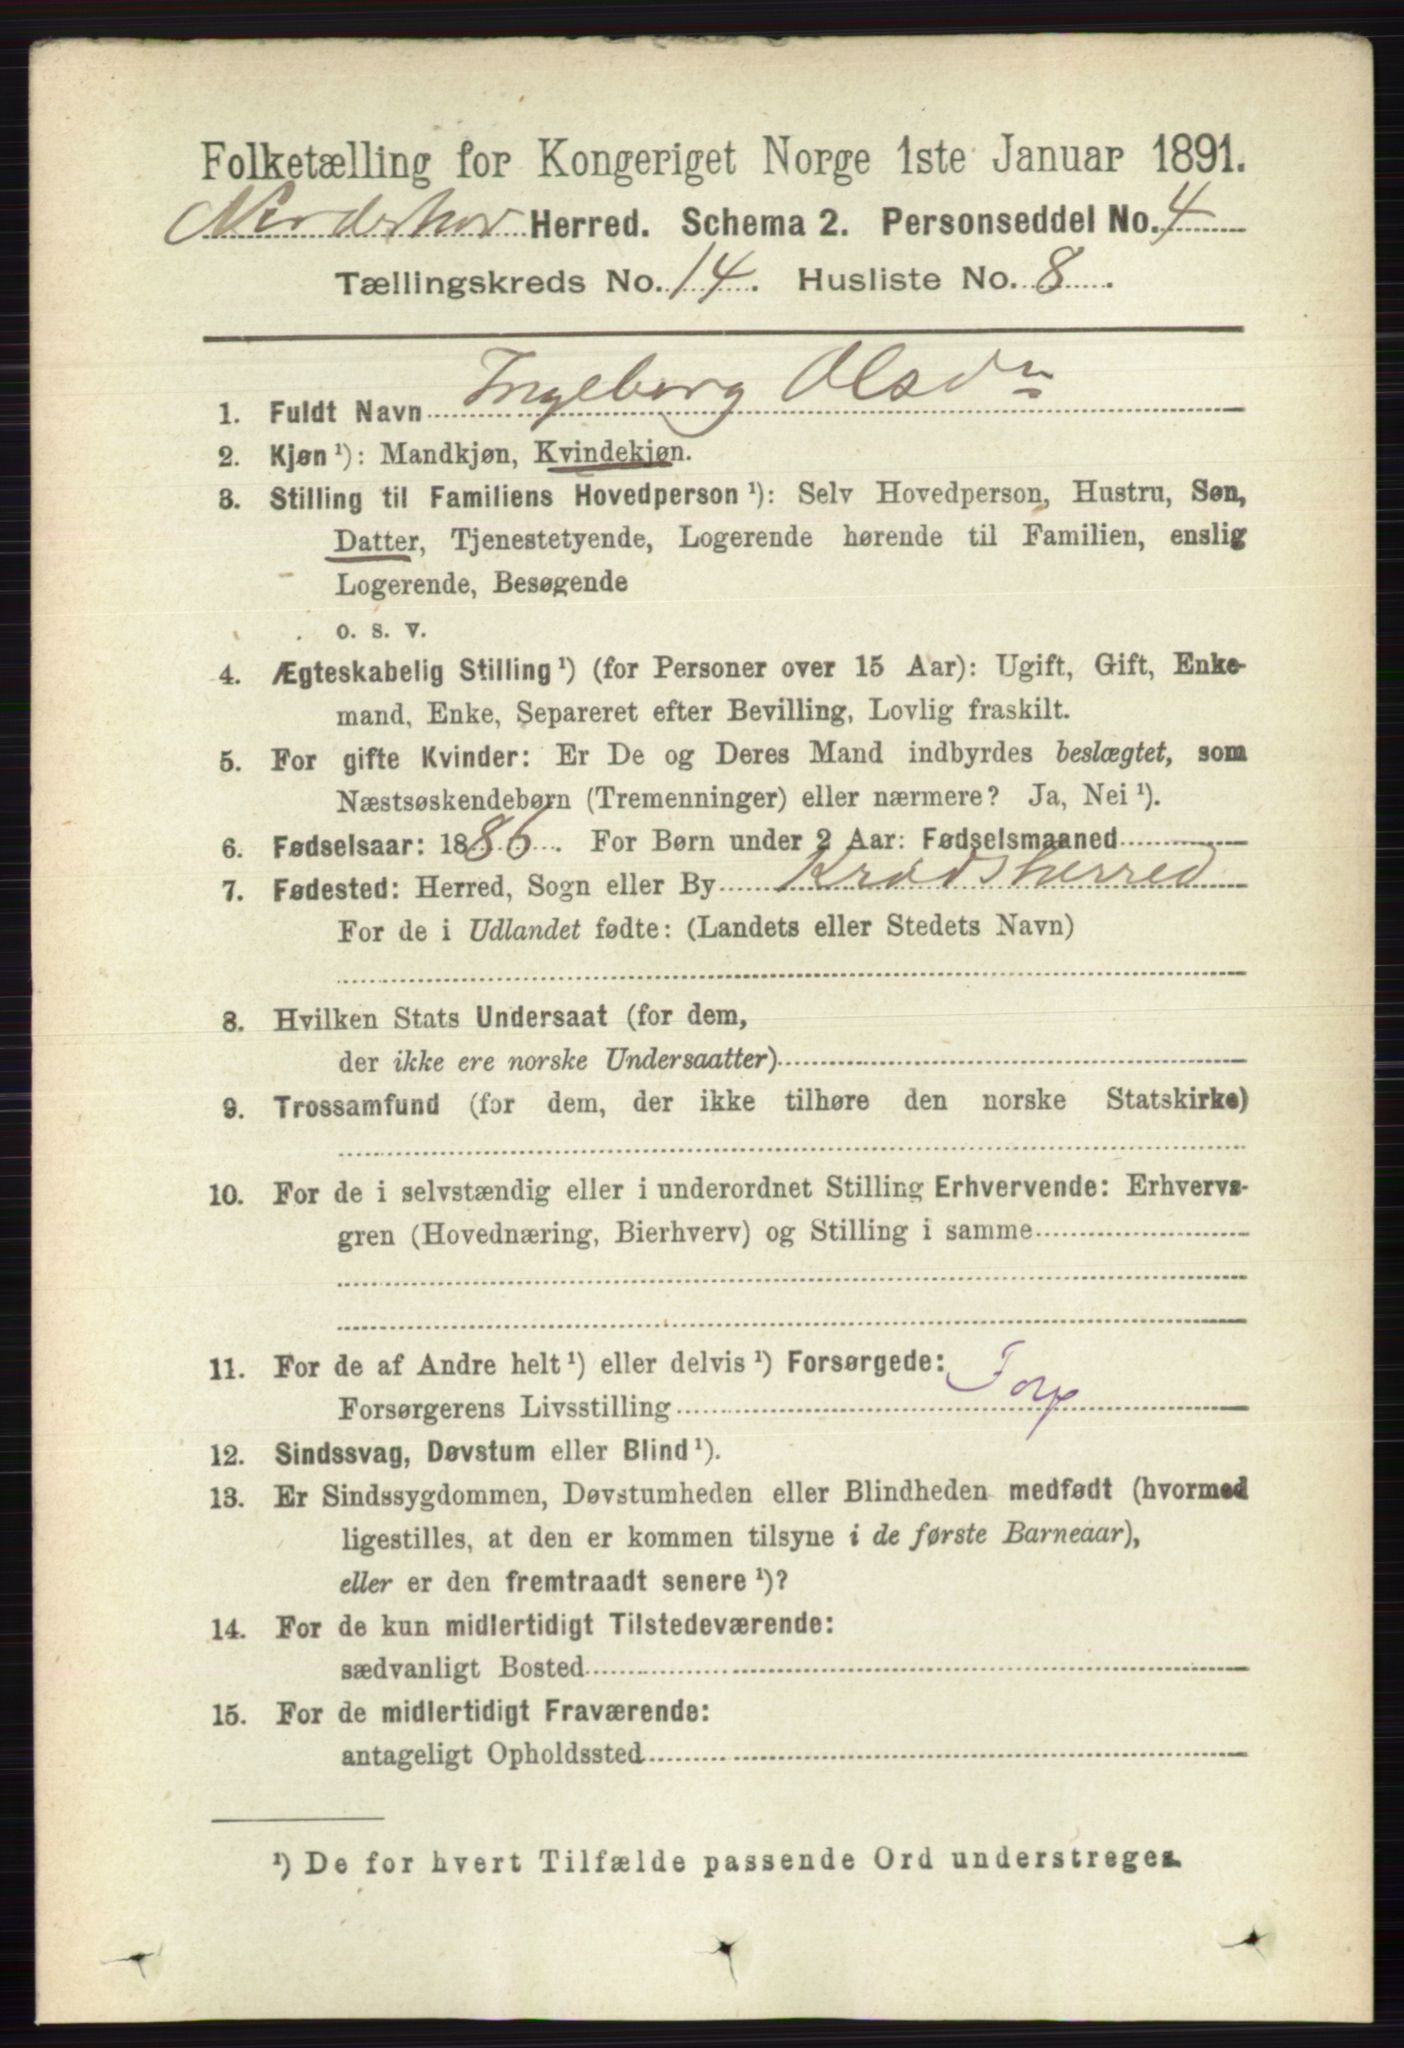 Folketælling for Kongeriget Norge 1ste Januar 1891.
Norderhov Herred. Schema 2. Personseddel No. 4
Tællingskreds No. 14. Husliste No. 8.
1. Fuldt Navn Ingeborg Olsdn
2. Kjøn ¹): Mandkjøn, Kvindekjøn.
3. Stilling til Familiens Hovedperson ¹): Selv Hovedperson, Hustru, Søn,
Datter, Tjenestetyende, Logerende hørende til Familien, enslig
Logerende, Besøgende
o. s. v.
4. Ægteskabelig Stilling ¹) (for Personer over 15 Aar): Ugift, Gift, Enke-
mand, Enke, Separeret efter Bevilling, Lovlig fraskilt.
5. For gifte Kvinder: Er De og Deres Mand indbyrdes beslægtet, som
Næstsøskendebørn (Tremenninger) eller nærmere? Ja, Nei ¹).
6. Fødselsaar: 1886. For Børn under 2 Aar: Fødselsmaaned
7. Fødested: Herred, Sogn eller By Krødsherred
For de i Udlandet fødte: (Landets eller Stedets Navn)
8. Hvilken Stats Undersaat (for dem,
der ikke ere norske Undersaatter)
9. Trossamfund (for dem, der ikke tilhøre den norske Statskirke)
10. For de i selvstændig eller i underordnet Stilling Erhvervende: Erhvervs-
gren (Hovednæring, Bierhverv) og Stilling i samme
11. For de af Andre helt ¹) eller delvis ¹) Forsørgede:
Forsørgerens Livsstilling
12. Sindssvag, Døvstum eller Blind ¹).
13. Er Sindssygdommen, Døvstumheden eller Blindheden medfødt (hvormed
ligestilles, at den er kommen tilsyne i de første Barneaar),
eller er den fremtraadt senere ¹)?
14. For de kun midlertidigt Tilstedeværende:
sædvanligt Bosted
15. For de midlertidigt Fraværende:
antageligt Opholdssted
¹) De for hvert Tilfælde passende Ord understreges.